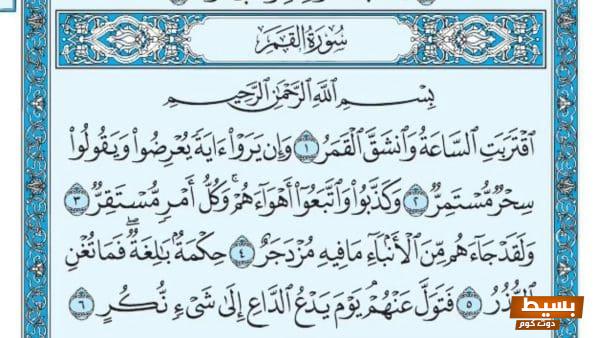 سُورَةُ القَمَرِ
بِسْمِ اللَّهِ الرَّحْمَٰنِ الرَّحِيمِ
اقْتَرَبَتِ السَّاعَةُ وَانشَقَّ الْقَمَرُ ١ وَإِن يَرَوْا ءَايَةً يُعْرِضُوا وَيَقُولُوا
سِحْرٌ مُّسْتَمِرٌّ ٢ وَكَذَّبُوا وَاتَّبَعُوا أَهْوَاءَهُمْ ۚ وَكُلُّ أَمْرٍ مُّسْتَقِرٌّ ٣
وَلَقَدْ جَاءَهُم مِّنَ الْأَنبَاءِ مَا فِيهِ مُزْدَجَرٌ ٤ حِكْمَةٌ بَالِغَةٌ ۖ فَمَا تُغْنِ
النُّذُرُ ٥ فَتَوَلَّ عَنْهُمْ ۘ يَوْمَ يَدْعُ الدَّاعِ إِلَىٰ شَيْءٍ نُّكُرٍ ٦
بسيط
دوت كوم